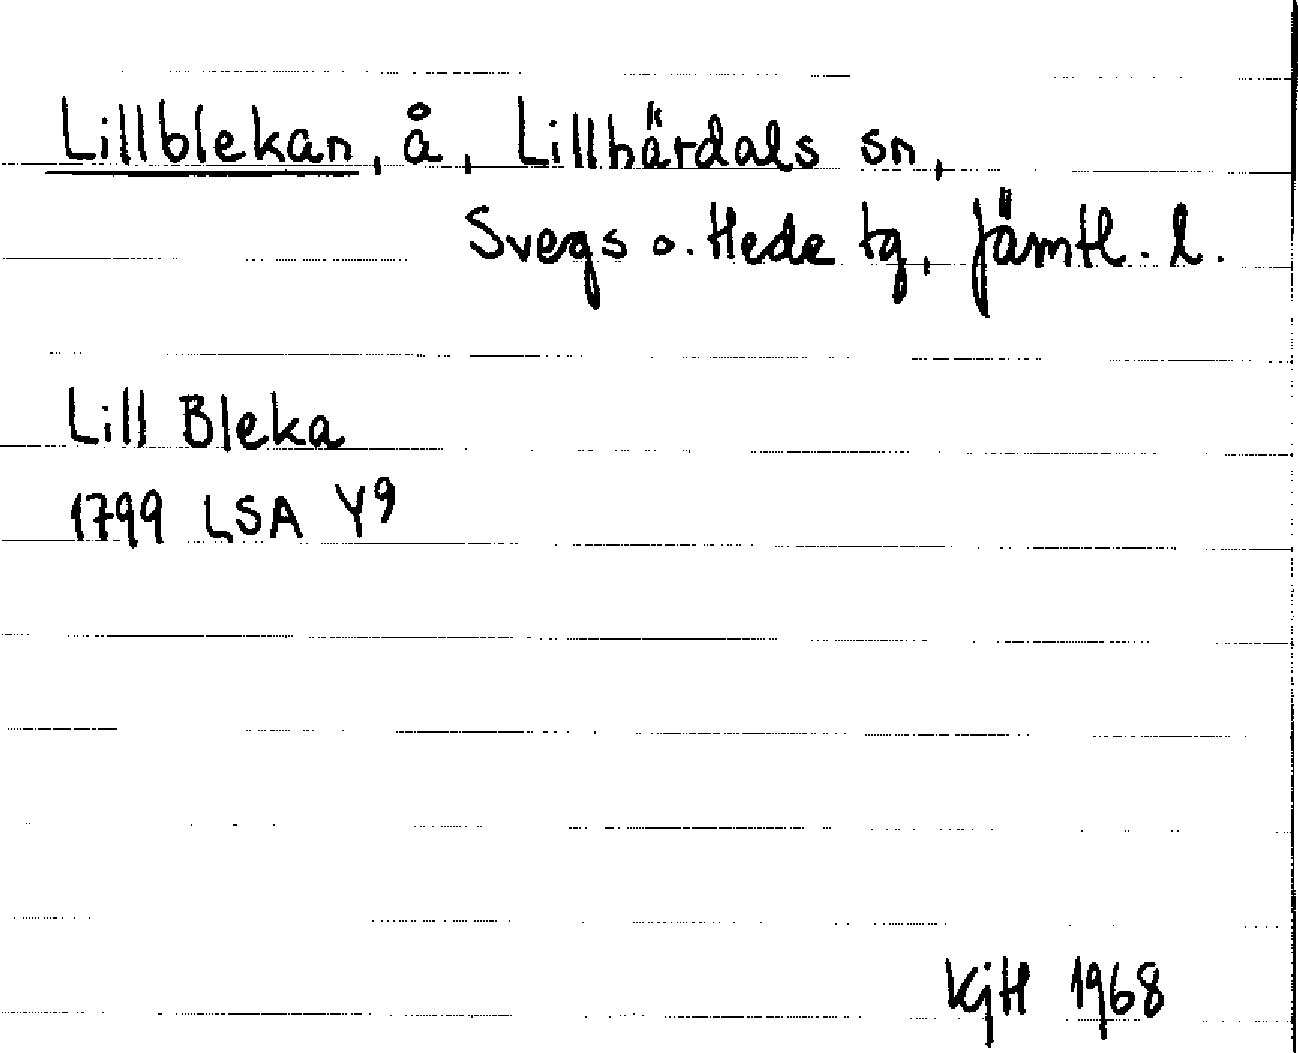 Lillblekan, å, Lillhärdals sn,
Svegs o. Hede tg, Jämtl. l.
Lill Bleka
1799 LSA Y9
KGH 1968